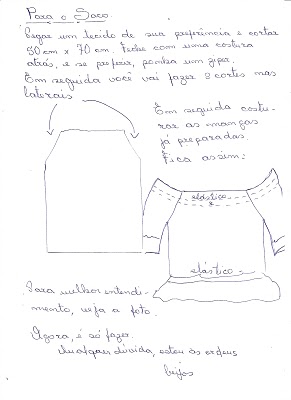 Para o Saco.
Pegar um tecido de sua preferência e cortar
80 cm x 70 cm. Feche com uma costura
atrás, e se preferir, ponha um ziper.
Em seguida você vai fazer 2 cortes nas
laterais
Em seguida costu-
rar as mangas
já preparadas.
Fica assim:
elástico
elástico
Para melhor entendi-
mento, veja a foto.
Agora, é só fazer.
Qualquer dúvida, estou às ordens
beijos